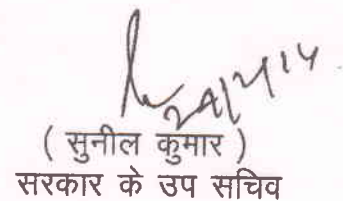 24/2/14
( सुनील कुमार )
सरकार के उप सचिव